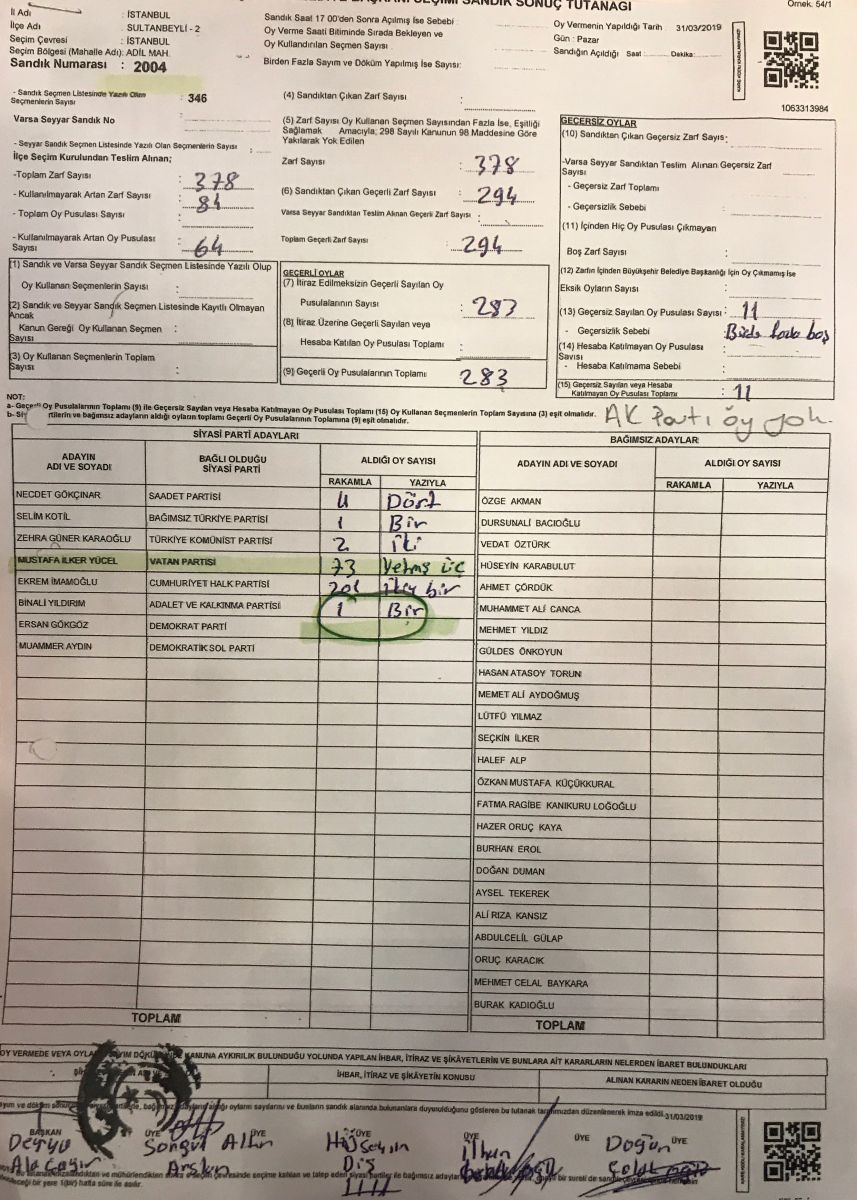 BAŞKANI SEÇİMİ SANDIK SONUÇ TUTANAĞI
Örnek. 54/1
İl Adı : İSTANBUL
İlçe Adı : SULTANBEYLİ - 2
Seçim Çevresi : İSTANBUL
Seçim Bölgesi (Mahalle Adı): ADİL MAH.
Sandık Numarası : 2004
Sandık Saat 17 00'den Sonra Açılmış İse Sebebi :
Oy Verme Saati Bitiminde Sırada Bekleyen ve
Oy Kullandırılan Seçmen Sayısı :
Birden Fazla Sayım ve Döküm Yapılmış İse Sayısı:
Oy Vermenin Yapıldığı Tarih : 31/03/2019
Gün : Pazar
Sandığın Açıldığı Saat : Dakika:
1063313984
- Sandık Seçmen Listesinde Yazılı Olan
Seçmenlerin Sayısı : 346
Varsa Seyyar Sandık No
- Seyyar Sandık Seçmen Listesinde Yazılı Olan Seçmenlerin Sayısı :
İlçe Seçim Kurulundan Teslim Alınan;
-Toplam Zarf Sayısı : 378
- Kullanılmayarak Artan Zarf Sayısı : 84
- Toplam Oy Pusulası Sayısı :
- Kullanılmayarak Artan Oy Pusulası
Sayısı : 64
(4) Sandıktan Çıkan Zarf Sayısı :
(5) Zarf Sayısı Oy Kullanan Seçmen Sayısından Fazla İse, Eşitliği
Sağlamak Amacıyla; 298 Sayılı Kanunun 98 Maddesine Göre
Yakılarak Yok Edilen
Zarf Sayısı : 378
(6) Sandıktan Çıkan Geçerli Zarf Sayısı : 294
Varsa Seyyar Sandıktan Teslim Alınan Geçerli Zarf Sayısı :
Toplam Geçerli Zarf Sayısı : 294
GEÇERSİZ OYLAR
(10) Sandıktan Çıkan Geçersiz Zarf Sayıs:
-Varsa Seyyar Sandıktan Teslim Alınan Geçersiz Zarf
Sayısı :
- Geçersiz Zarf Toplamı :
- Geçersizlik Sebebi :
(11) İçinden Hiç Oy Pusulası Çıkmayan
Boş Zarf Sayısı :
(12) Zarfın İçinden Büyükşehir Belediye Başkanlığı İçin Oy Çıkmamış İse
Eksik Oyların Sayısı :
(13) Geçersiz Sayılan Oy Pusulası Sayısı : 11
- Geçersizlik Sebebi : boş
(14) Hesaba Katılmayan Oy Pusulası
Sayısı :
- Hesaba Katılmama Sebebi :
(15) Geçersiz Sayılan veya Hesaba
Katılmayan Oy Pusulası Toplamı : 11
(1) Sandık ve Varsa Seyyar Sandık Seçmen Listesinde Yazılı Olup
Oy Kullanan Seçmenlerin Sayısı :
(2) Sandık ve Seyyar Sandık Seçmen Listesinde Kayıtlı Olmayan
Ancak
Kanun Gereği Oy Kullanan Seçmen :
Sayısı
(3) Oy Kullanan Seçmenlerin Toplam
Sayısı :
GEÇERLİ OYLAR
(7) İtiraz Edilmeksizin Geçerli Sayılan Oy
Pusulalarının Sayısı : 283
(8) İtiraz Üzerine Geçerli Sayılan veya
Hesaba Katılan Oy Pusulası Toplamı :
(9) Geçerli Oy Pusulalarının Toplamı : 283
NOT:
a- Geçerli Oy Pusulalarının Toplamı (9) ile Geçersiz Sayılan veya Hesaba Katılmayan Oy Pusulası Toplamı (15) Oy Kullanan Seçmenlerin Toplam Sayısına (3) eşit olmalıdır.
b- rtilerin ve bağımsız adayların aldığı oyların toplamı Geçerli Oy Pusulalarının Toplamına (9) eşit olmalıdır.
AK Parti öy yok.
SİYASİ PARTİ ADAYLARI
ADAYIN ADI VE SOYADI BAĞLI OLDUĞU SİYASİ PARTİ ALDIĞI OY SAYISI
RAKAMLA YAZIYLA
NECDET GÖKÇINAR SAADET PARTİSİ 4 Dört
SELİM KOTİL BAĞIMSIZ TÜRKİYE PARTİSİ 1 Bir
ZEHRA GÜNER KARAOĞLU TÜRKİYE KOMÜNİST PARTİSİ 2 iki
MUSTAFA İLKER YÜCEL VATAN PARTİSİ 73 Yetmş üç
EKREM İMAMOĞLU CUMHURİYET HALK PARTİSİ 201 ikiy bir
BİNALİ YILDIRIM ADALET VE KALKINMA PARTİSİ 1 Bir
ERSAN GÖKGÖZ DEMOKRAT PARTİ
MUAMMER AYDIN DEMOKRATİK SOL PARTİ
TOPLAM
BAĞIMSIZ ADAYLAR
ADAYIN ADI VE SOYADI ALDIĞI OY SAYISI
RAKAMLA YAZIYLA
ÖZGE AKMAN
DURSUNALİ BACIOĞLU
VEDAT ÖZTÜRK
HÜSEYİN KARABULUT
AHMET ÇÖRDÜK
MUHAMMET ALİ CANCA
MEHMET YILDIZ
GÜLDES ÖNKOYUN
HASAN ATASOY TORUN
MEMET ALİ AYDOĞMUŞ
LÜTFÜ YILMAZ
SEÇKİN İLKER
HALEF ALP
ÖZKAN MUSTAFA KÜÇÜKKURAL
FATMA RAGİBE KANIKURU LOĞOĞLU
HAZER ORUÇ KAYA
BURHAN EROL
DOĞAN DUMAN
AYSEL TEKEREK
ALİ RIZA KANSIZ
ABDULCELİL GÜLAP
ORUÇ KARACIK
MEHMET CELAL BAYKARA
BURAK KADIOĞLU
TOPLAM
OY VERMEDE VEYA KANUNA AYKIRILIK BULUNDUĞU YOLUNDA YAPILAN İHBAR, İTİRAZ VE ŞİKÂYETLERİN VE BUNLARA AİT KARARLARIN NELERDEN İBARET BULUNDUKLARI
İHBAR, İTİRAZ VE ŞİKÂYETİN KONUSU
ALINAN KARARIN NEDEN İBARET OLDUĞU
adayların aldığı oyların sayılarını ve bunların sandık alanında bulunanlara duyurulduğunu gösteren bu tutanak tarafımızdan düzenlenerek imza edildi. 31/03/2019
BAŞKAN ÜYE ÜYE ÜYE ÜYE ÜYE
Derya Songül Altın Hüseyin İlhan Doğun
Alaçayır Arslan Diş